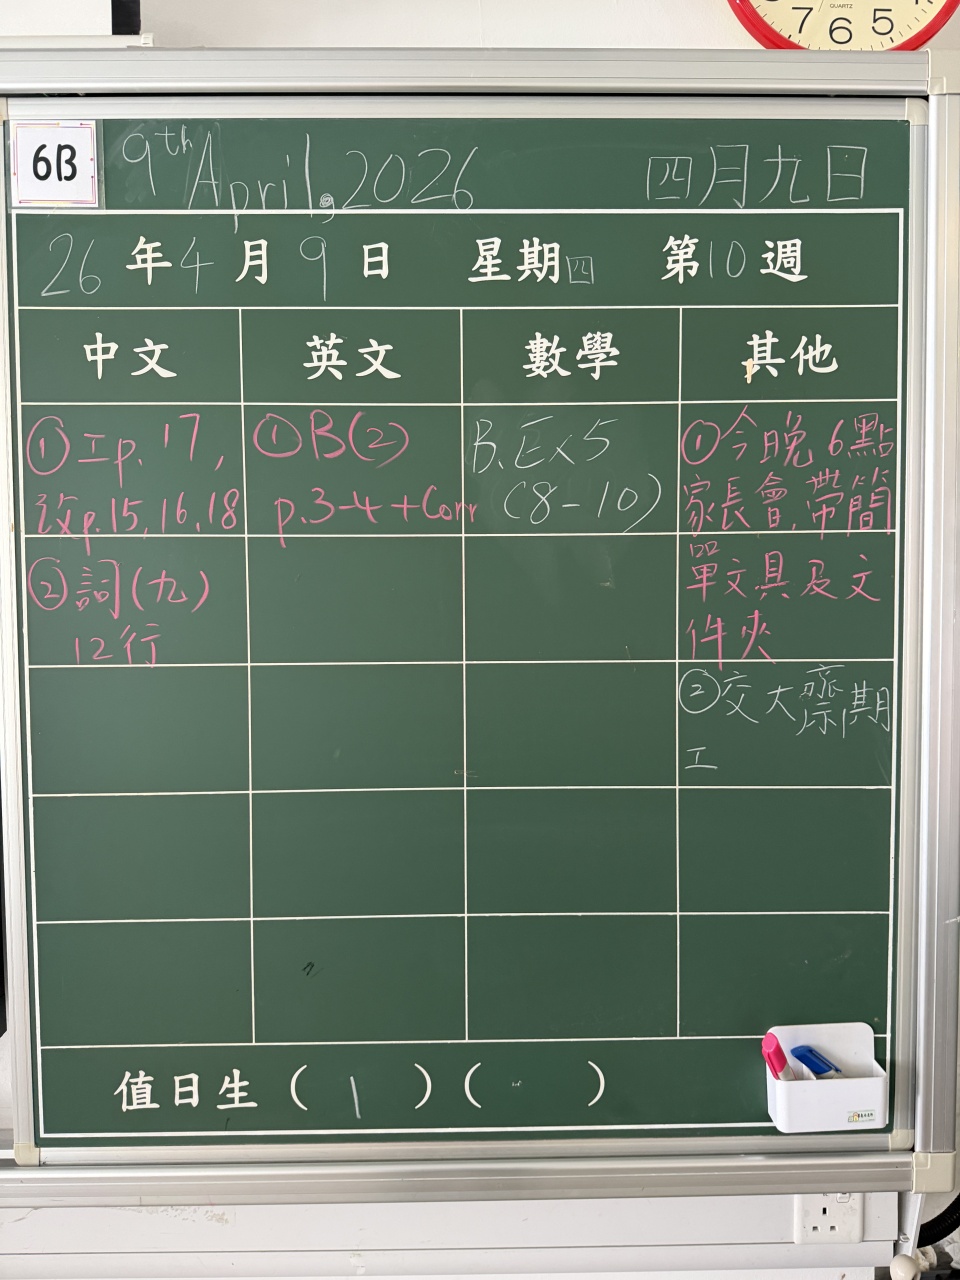 QUARTZ
7 6 5
6B
9th April, 2026 四月九日
26年4月9日 星期四 第10週
中文 英文 數學 其他
①工p.17,
改p.15,16,18
②詞(九)
12行
①B(2)
p.3-4+Corr
B.Ex5
(8-10)
①今晚6點
家長會,帶簡
單文具及文
件夾
②交大齋期
工
值日生(1)( )